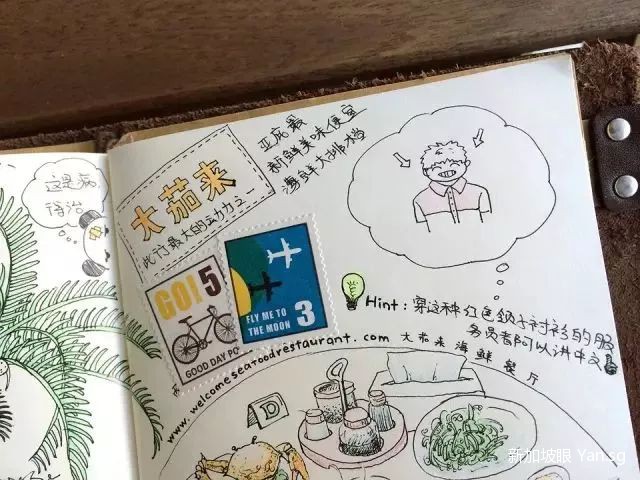 这是病
得治
大茄来
此行最大的动力之一
亚庇最
新鲜美味便宜
海鲜大排档
GO! 5
GOOD DAY PO
FLY ME TO
THE MOON 3
Hint: 穿这种红色领子衬衫的服
务员都可以讲中文
www.welcomeseafoodrestaurant.com 大茄来海鲜餐厅
D
新加坡眼 Yan.sg